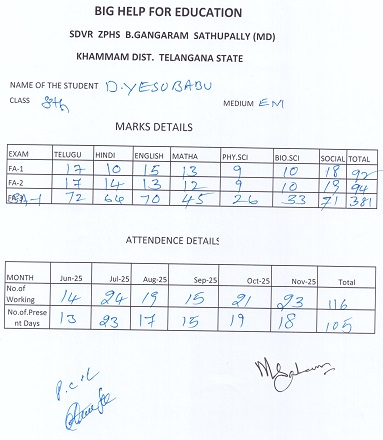 BIG HELP FOR EDUCATION
SDVR ZPHS B.GANGARAM SATHUPALLY (MD)
KHAMMAM DIST. TELANGANA STATE
NAME OF THE STUDENT D.YESUBABU
CLASS 8th MEDIUM EM
MARKS DETAILS
EXAM TELUGU HINDI ENGLISH MATHA PHY.SCI BIO.SCI SOCIAL TOTAL
FA-1 17 10 15 13 9 10 18 92
FA-2 17 14 13 12 9 10 19 94
SA-1 72 64 70 45 26 33 71 381
ATTENDENCE DETAILS
MONTH Jun-25 Jul-25 Aug-25 Sep-25 Oct-25 Nov-25 Total
No.of
Working 14 24 19 15 21 23 116
No.of.Prese
nt Days 13 23 17 15 19 18 105